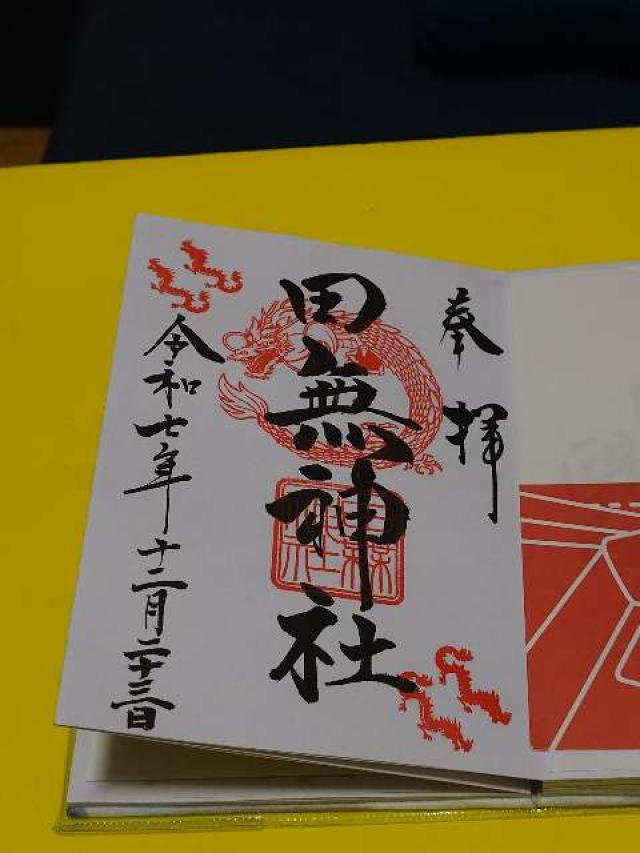 奉拝
田無神社
令和七年十二月二十三日